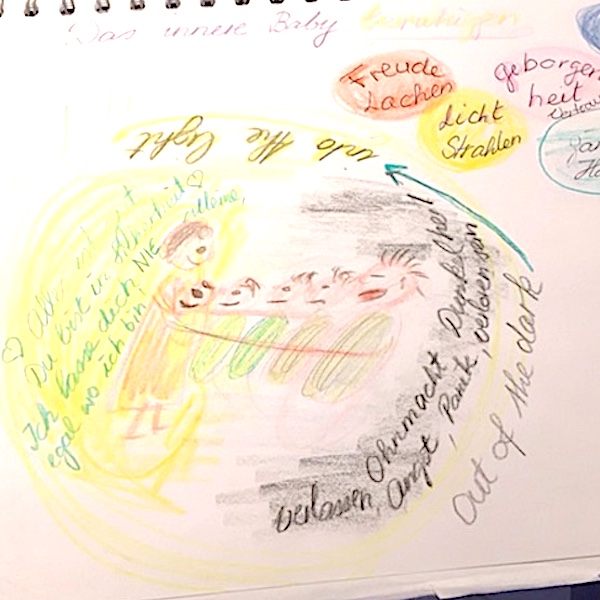 Das innere Baby beruhigen
Freude
Lachen
geborgen
heit
Licht
Strahlen
into the light
Alles ist gut
Du bist in Sicherheit
Ich lasse dich NIE alleine,
egal wo ich bin
Dunkelheit
Ohnmacht
verlassen, Angst, Panik, verloren sein
out of the dark